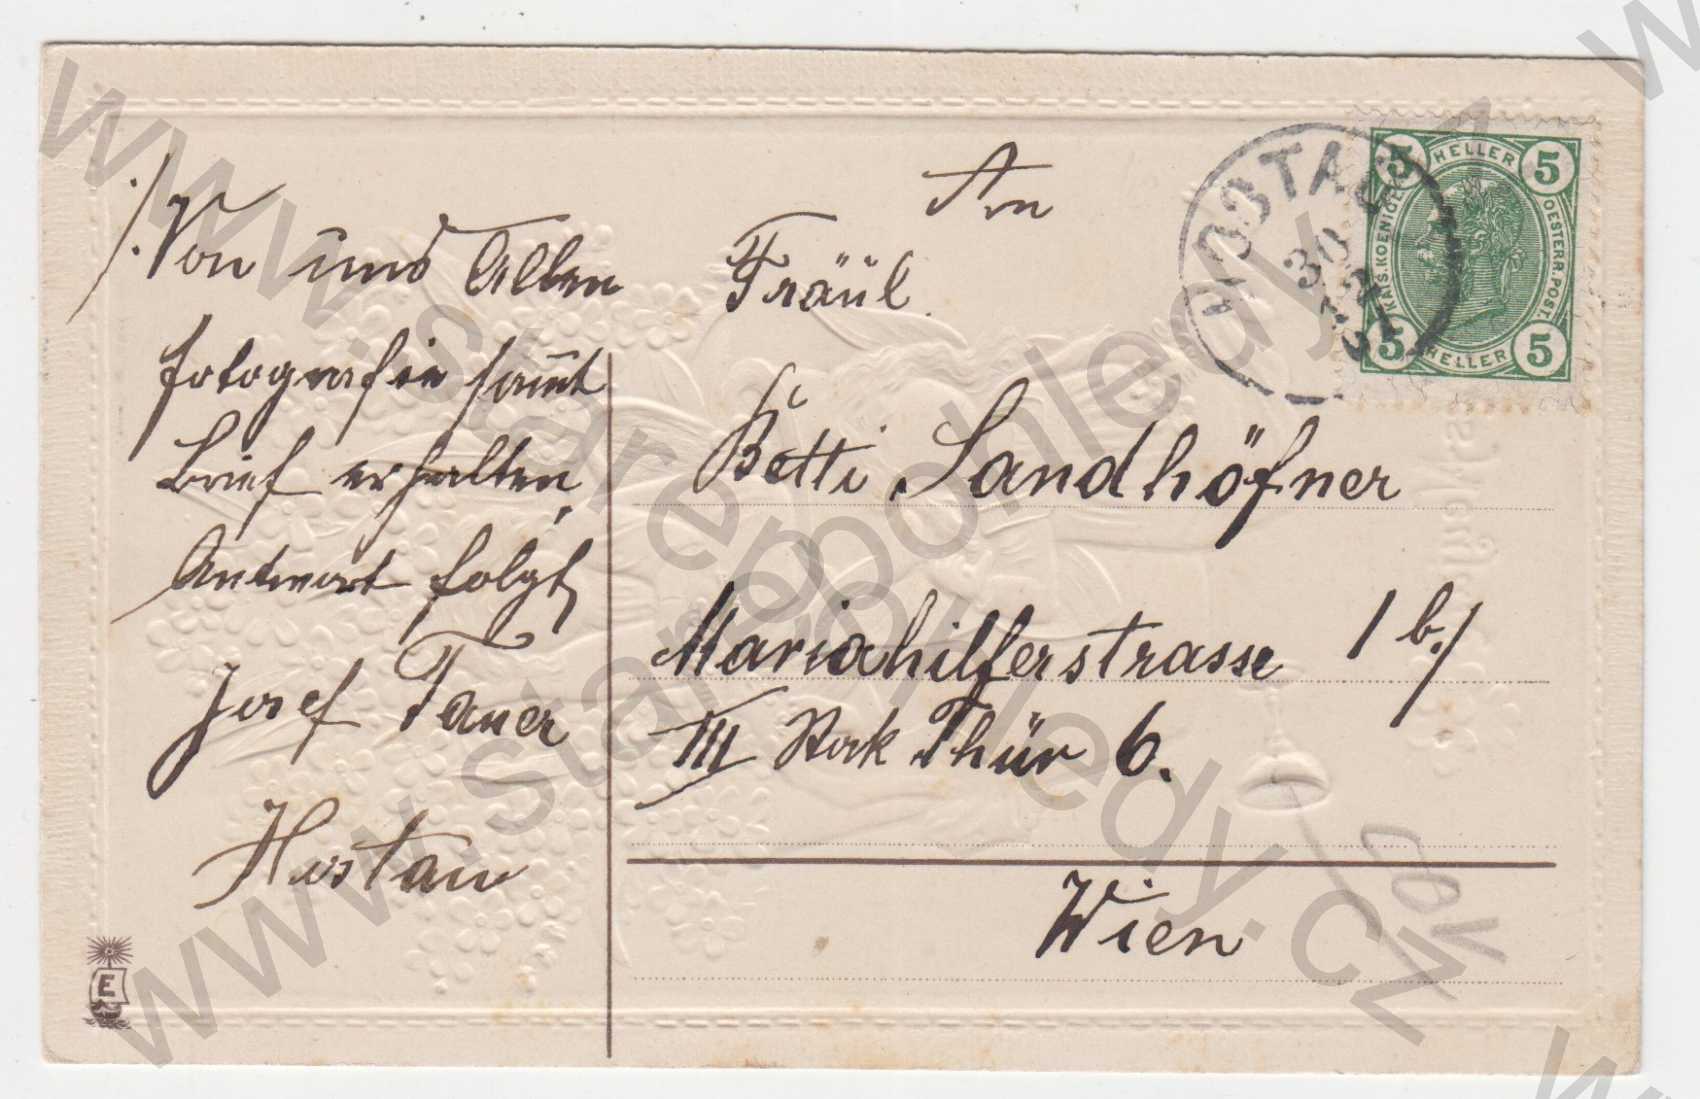 Von uns Allen
fotografie samt
Brief erhalten,
Antwort folgt,
Josef Tauer
Hostau
An
Fräul.
Betti Landhöfner
Mariahilferstrasse 1 b./
III Stok Thür 6.
Wien
HOSTAU
30
12
5 HELLER 5
KAIS. KOENIGL.
OESTERR. POST.
5 HELLER 5
E
www.starepohledy.cz
www.starepohledy.cz